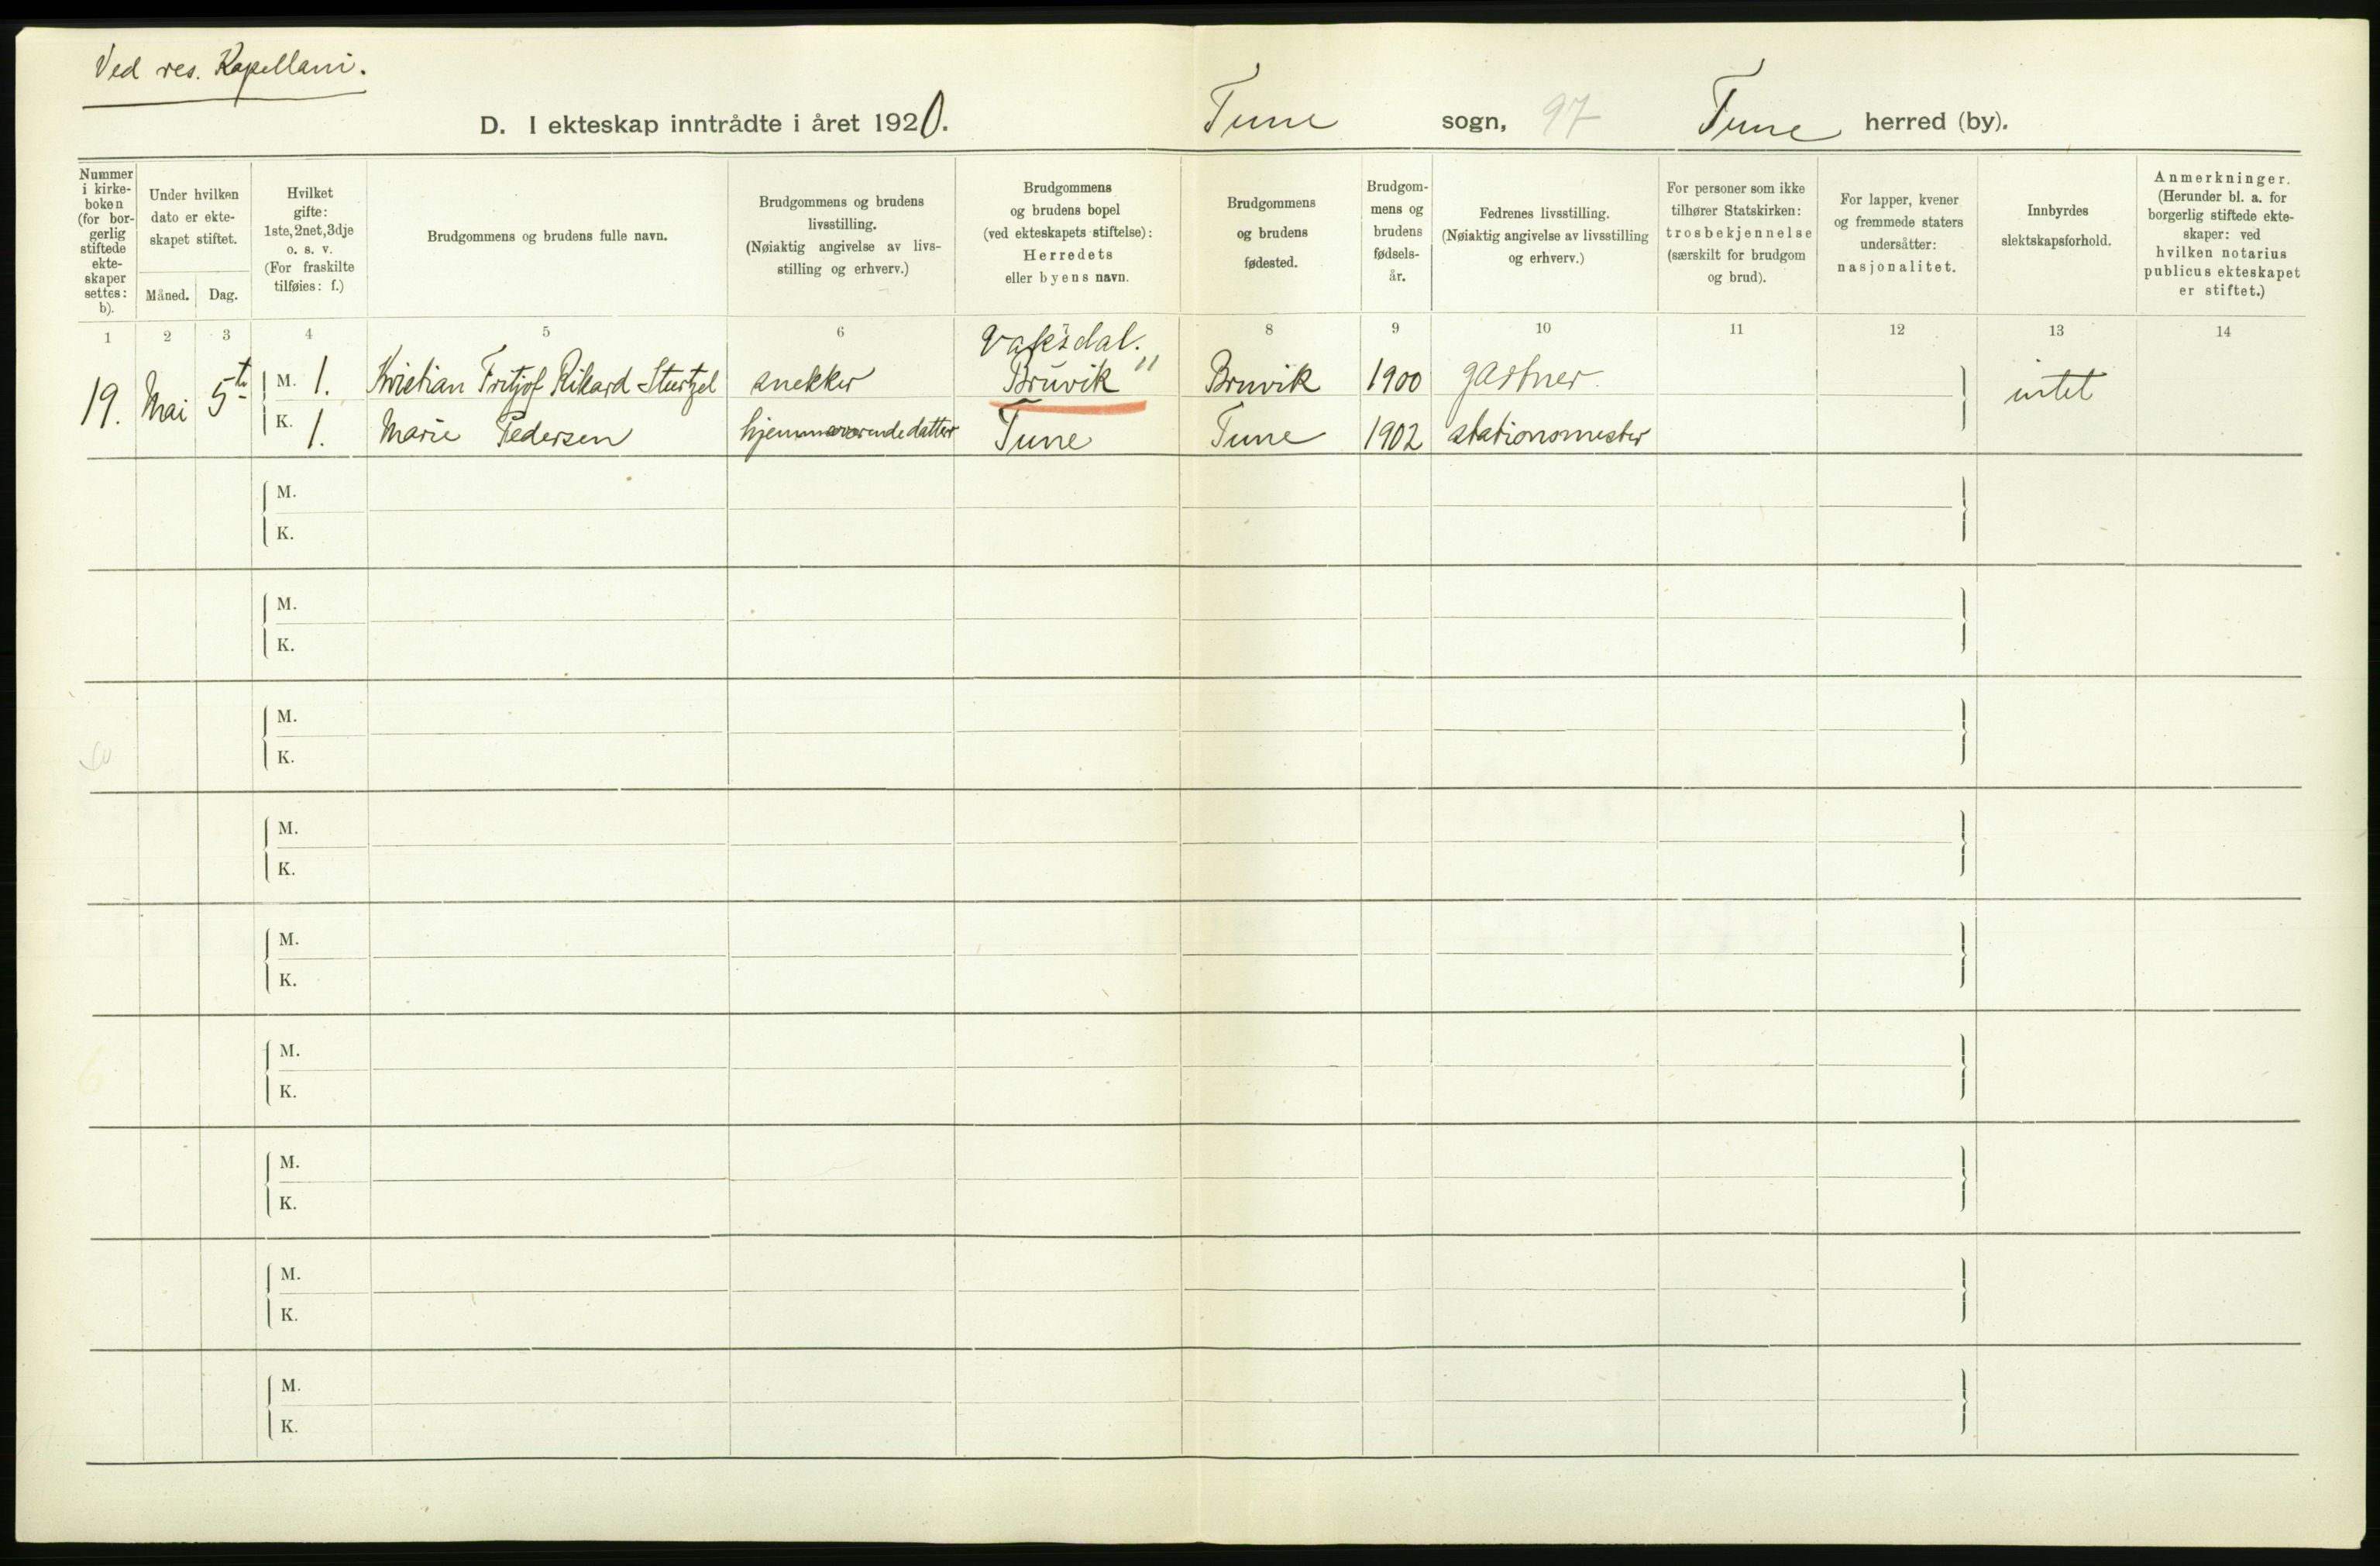 Ved res. Kapellani.
D. I ekteskap inntrådte i året 1920. Tune sogn, 97 Tune herred (by).
Nummer i kirke-boken (for bor-gerlig stiftede ekte-skaper settes: b).
Under hvilken dato er ekte-skapet stiftet.
Måned. Dag.
Hvilket gifte: 1ste, 2net, 3dje o. s. v. (For fraskilte tilføies: f.)
Brudgommens og brudens fulle navn.
Brudgommens og brudens livsstilling. (Nøiaktig angivelse av livs-stilling og erhverv.)
Brudgommens og brudens bopel (ved ekteskapets stiftelse): Herredets eller byens navn.
Brudgommens og brudens fødested.
Brudgom-mens og brudens fødsels-år.
Fedrenes livsstilling. (Nøiaktig angivelse av livsstilling og erhverv.)
For personer som ikke tilhører Statskirken: trosbekjennelse (særskilt for brudgom og brud).
For lapper, kvener og fremmede staters undersåtter: nasjonalitet.
Innbyrdes slektskapsforhold.
Anmerkninger. (Herunder bl. a. for borgerlig stiftede ekte-skaper: ved hvilken notarius publicus ekteskapet er stiftet.)
1 2 3 4 5 6 7 8 9 10 11 12 13 14
Vaksdal.
19. Mai 5te M. 1. Kristian Fritjof Rikard Sturtzel snekker Bruvik " Bruvik 1900 gartner. intet
K. 1. Marie Pedersen hjemmeværende datter Tune Tune 1902 stationsmester
M.
K.
M.
K.
M.
K.
M.
K.
M.
K.
M.
K.
M.
K.
M.
K.
M.
K.